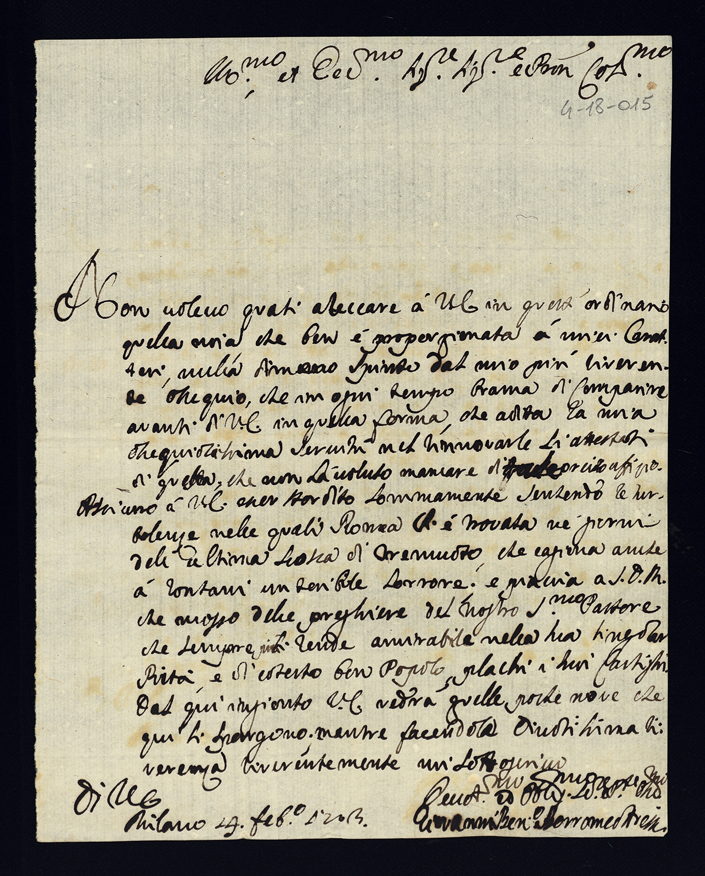 Ill.mo et Ecc.mo Sig.re Sig.re e Pron Col.mo
4-18-015
Non volevo quasi ateccare à V.E. in quest' ordinario
quella noia che ben é proporzionata á miei
teri, nulla dimeno spinto dal mio piú riveren-
te osequio, che in ogni tempo brama di Comparire
avanti di V.E. in quella forma che adita la mia
osequiosissima servitú nel rinnovarle li attestati
di quella, che non hà voluto mancare di
Assicuro á V.E. esser stordito sommamente sentendo le tur-
bolenze nelle quali Roma si é trovata ne giorni
dell ultima scossa di tremuoto che cagiona anche
á lontani un teribile terrore: e piaccia a S.D.M.
che mosso dalle preghiere del nostro S.mo Pastore
che sempre si rende amirabile nella sua singolar
Pietá, e di cotesto ben Popolo, plachi i suoi Castighi
Dal qui ingionto V.E. vedrá quelle poche nove che
qui si spargono. mentre facendola Divotissima ri-
verenza riverentemente mi sottoscrivo
Di V.E.
Milano 14. feb.o 1703.
Devot.mo ed Obblig.mo
Giovanni Ben.o Borromeo Arese